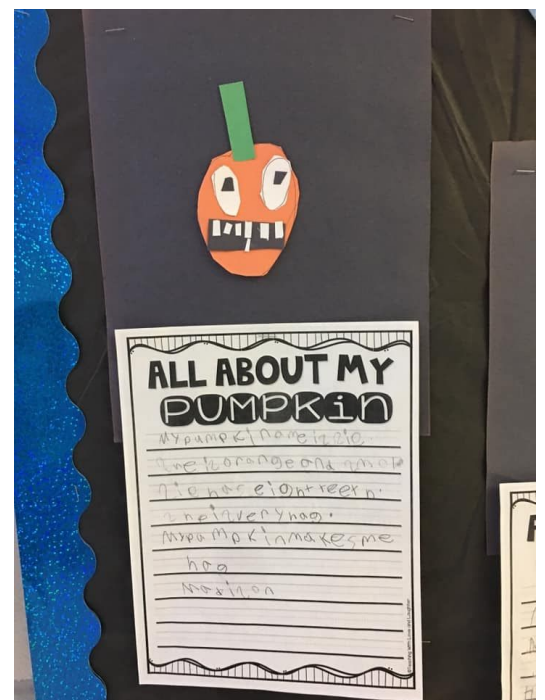 ALL ABOUT MY
PUMPKIN
My pumpkin name iz zio
zhe iz orange and
zio haz eight teeth.
zhe iz very hag.
My pumpkin makes me
hag
Madizon